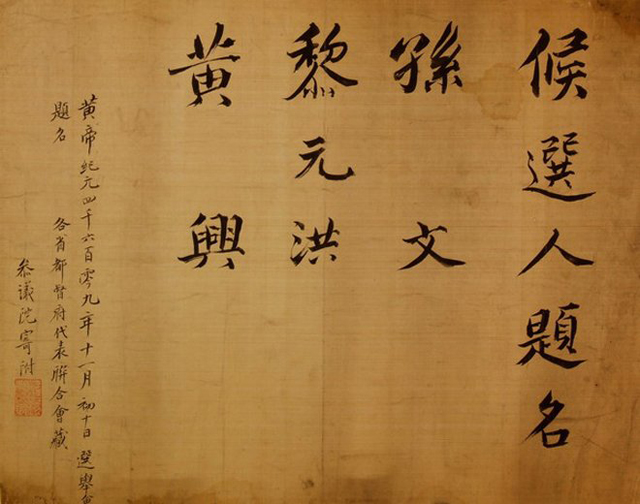 候選人題名
孫文
黎元洪
黃興
黃帝紀元四千六百零九年十一月初十日選舉會
題名
各省都督府代表聯合會藏
參議院寄附